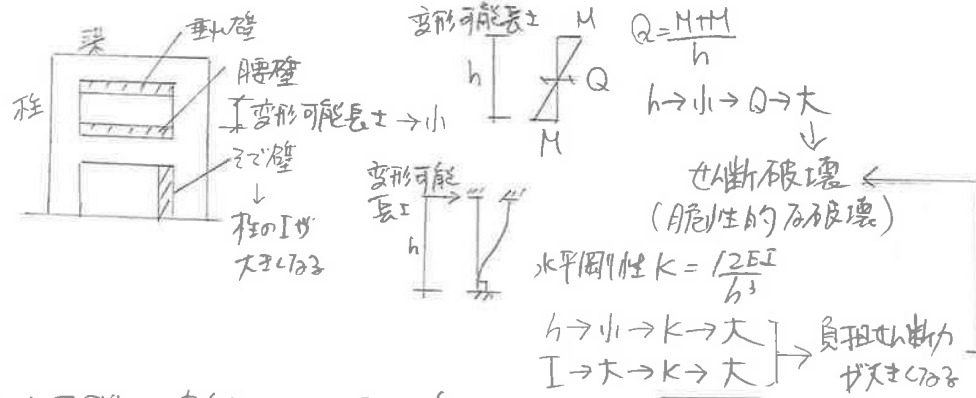 梁
垂れ壁
腰壁
柱
変形可能長さ→小
そで壁
↓
柱のIが
大きくなる
変形可能長さ
h
M
Q
M
Q=M+M/h
h→小→Q→大
↓
せん断破壊
(脆性的な破壊)
変形可能
長さ
h
水平剛性 K = 12EI/h³
h→小→K→大
I→大→K→大
→ 負担せん断力
が大きくなる